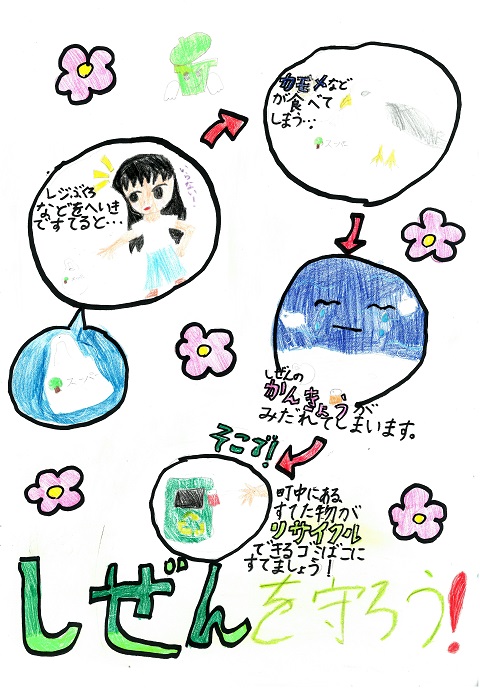 レジぶくろ
などをへいき
ですてると…
スーパー
カモメなど
が食べて
しまう…
スーパー
しぜんの
かんきょうが
みだれてしまいます。
そこで!
町中にある
すてた物が
リサイクル
できるゴミばこに
すてましょう!
しぜんを守ろう!